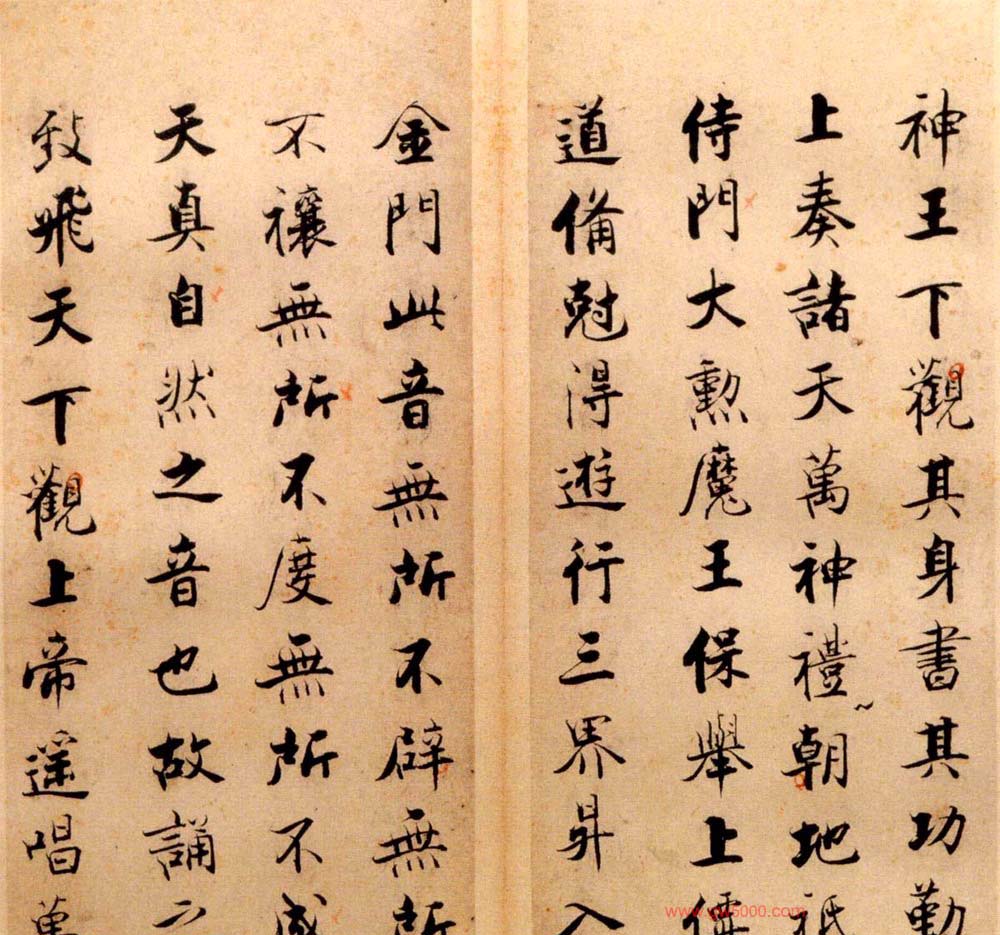 神王下觀其身書其功勤
上奏諸天萬神禮朝地祇
侍門大勲魔王保舉上
道備尅得遊行三界昇入
金門此音無所不辟無所
不禳無所不度無所不成
天真自然之音也故誦之
致飛天下觀上帝遥唱萬